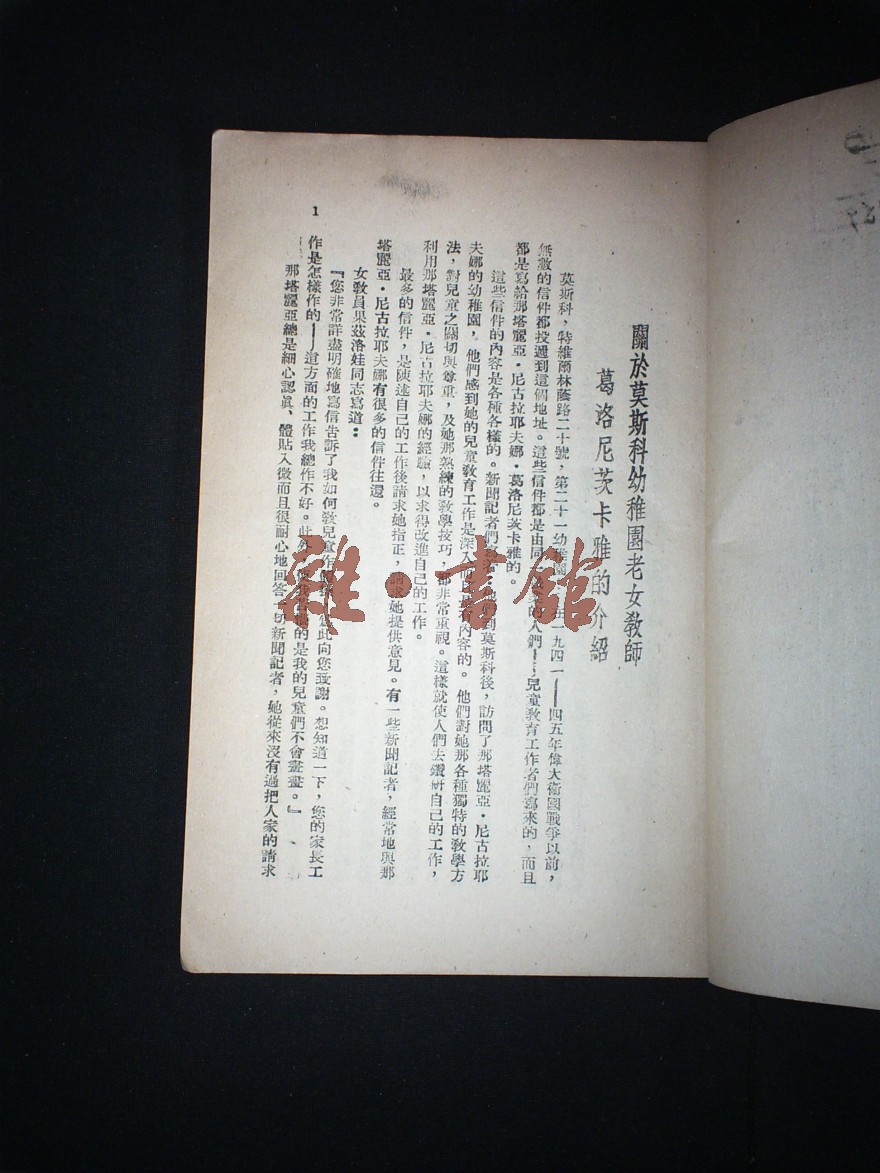 關於莫斯科幼稚園老女教師
葛洛尼茨卡雅的介紹
莫斯科，特維爾林蔭路二十號，第二十一幼稚園。在一九四一——四五年偉大衛國戰爭以前，
無數的信件都投遞到這個地址。這些信件都是由同的人們——兒童教育工作者們寫來的，而且
都是寫給那塔麗亞·尼古拉耶夫娜·葛洛尼茨卡雅的。
這些信件的內容是各種各樣的。新聞記者們到莫斯科後，訪問了那塔麗亞·尼古拉耶
夫娜的幼稚園，他們感到她的兒童教育工作是深入而內容的。他們對她那各種獨特的教學方
法，對兒童之關切與尊重，及她那熟練的教學技巧，都非常重視。這樣就使人們去鑽研自己的工作，
利用那塔麗亞·尼古拉耶夫娜的經驗，以求得改進自己的工作。
最多的信件，是陳述自己的工作後請求她指正，請求她提供意見。有一些新聞記者，經常地與那
塔麗亞·尼古拉耶夫娜有很多的信件往還。
女教員果茲洛娃同志寫道：
『您非常詳盡明確地寫信告訴了我如何教兒童作此向您致謝。想知道一下，您的家長工
作是怎樣作的——這方面的工作我總作不好。此外，的是我的兒童們不會畫畫。』
那塔麗亞總是細心認眞、體貼入微而且很耐心地回答一切新聞記者，她從來沒有過把人家的請求
1
雜·書館